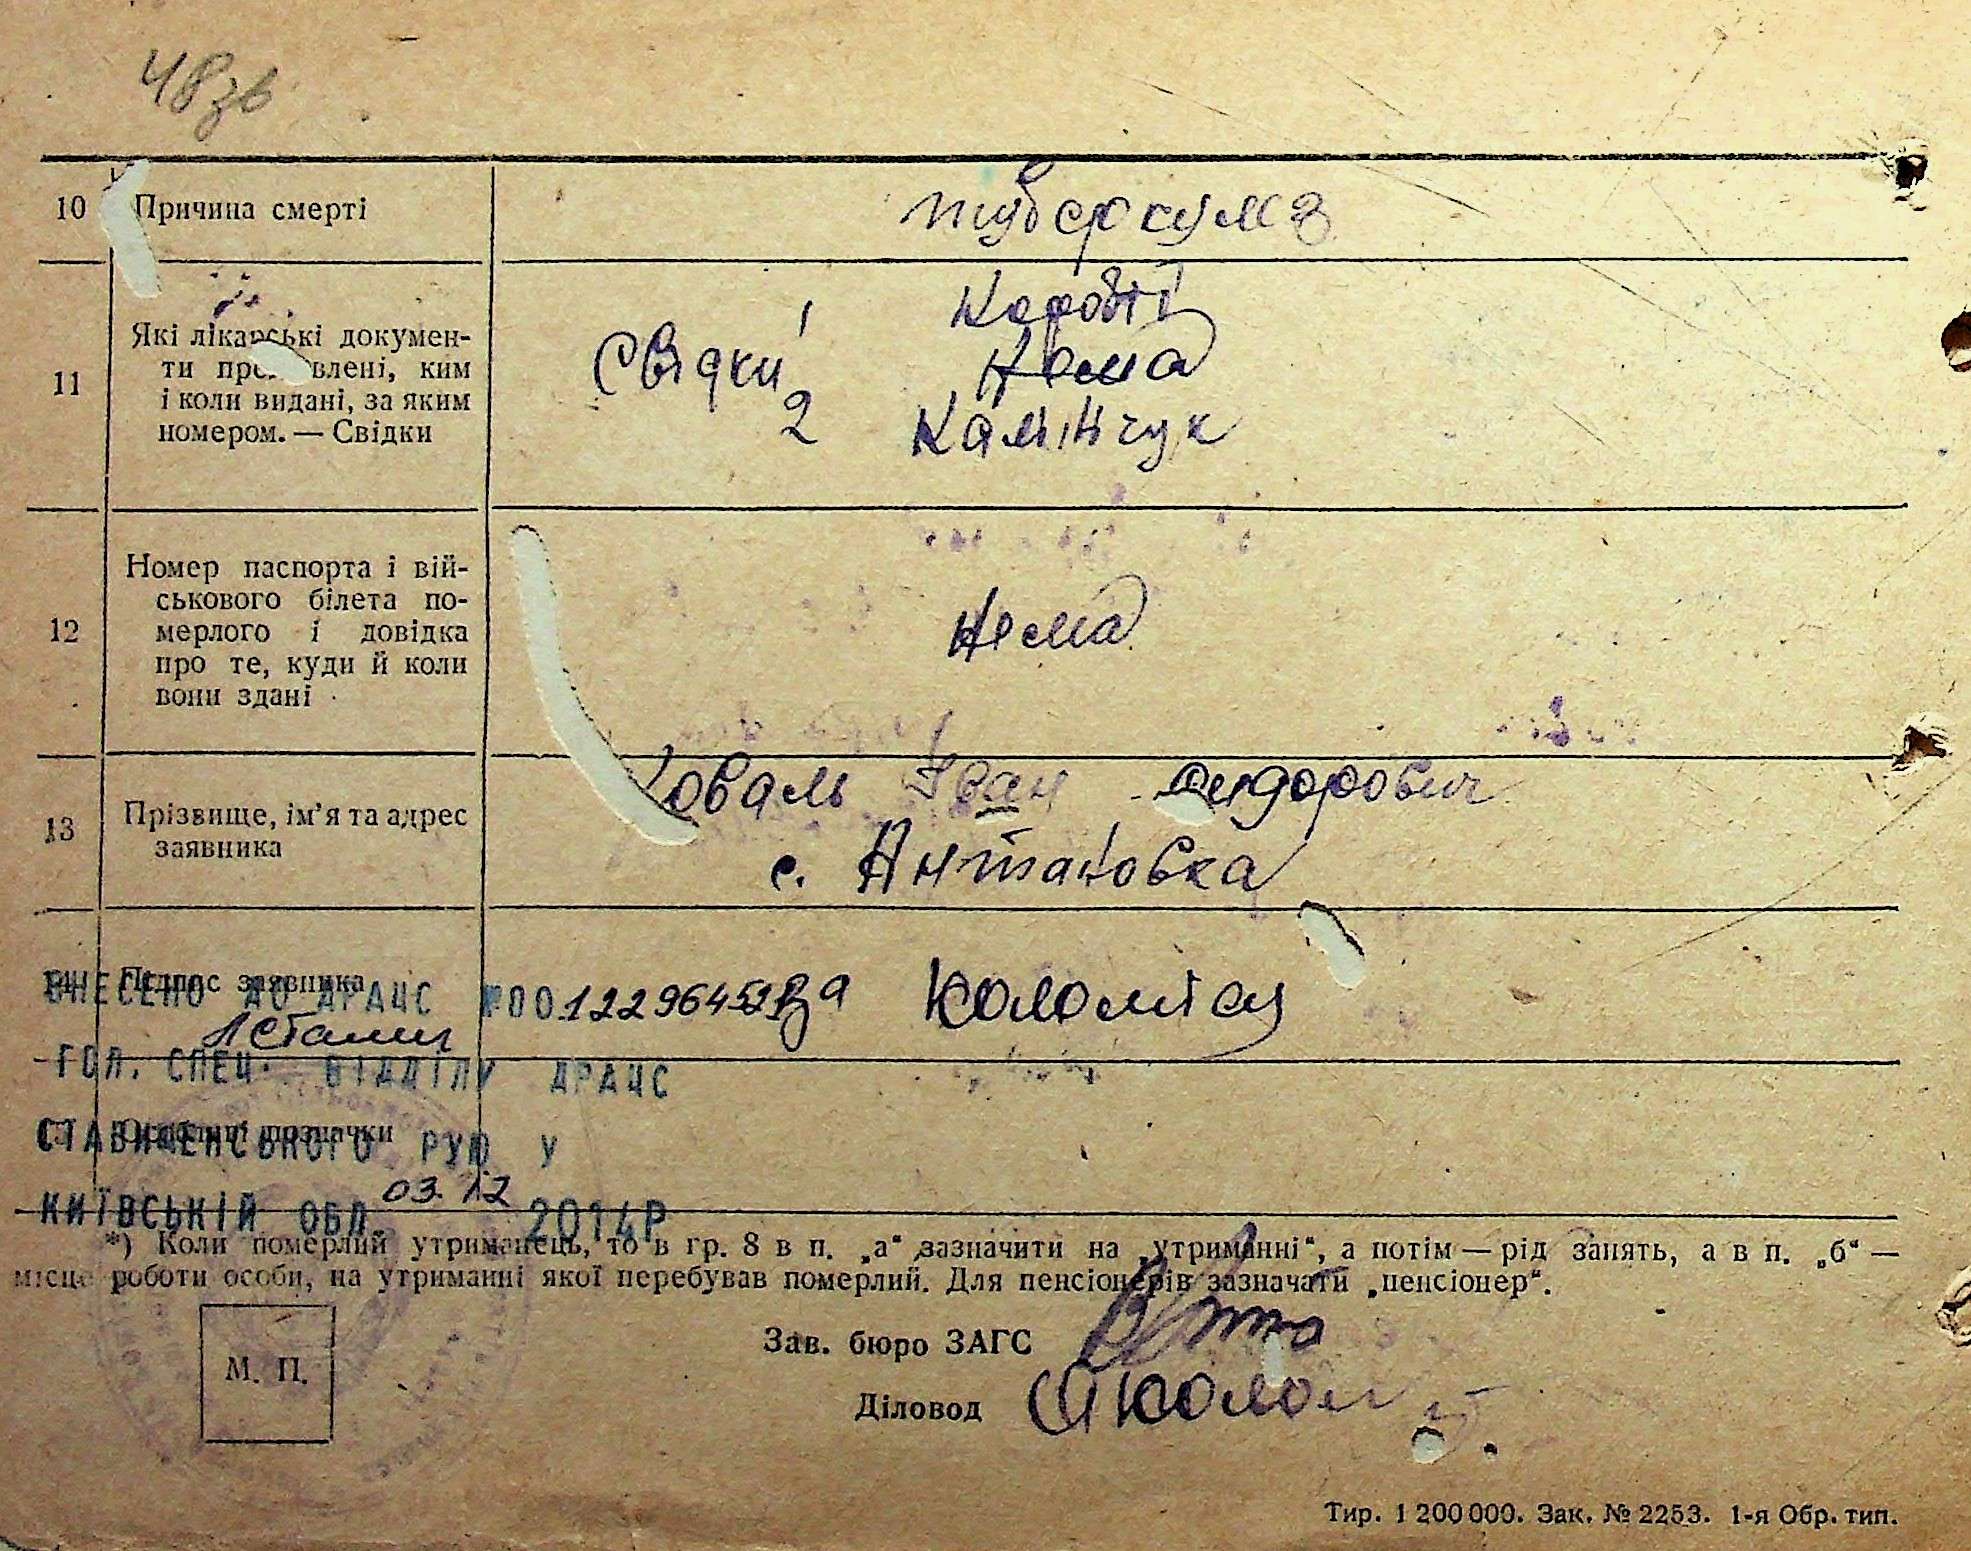 48зв
10 Причина смерті туберкульоз
11 Які лікарські докумен-
ти влені, ким
і коли видані, за яким
номером. — Свідки
Свідки 1
Нема
2 Камінчук
12 Номер паспорта і вій-
ськового білета по-
мерлого і довідка
про те, куди й коли
вони здані
Нема
13 Прізвище, ім’я та адрес
заявника
Коваль Іван Сидорович
с. Антановка
Підпис заявника
За Коломієц
ВНЕСЕНО ДО ДРАЦС №00122964521
ГОЛ. СПЕЦ. ВІДДІЛУ ДРАЦС
Особливі позначки
СТАВИЩЕНСЬКОГО РУЮ У
КИЇВСЬКІЙ ОБЛ. 03.12 2014Р
*) Коли померлий утриманець, то в гр. 8 в п. „а“ зазначити на „утриманні“, а потім — рід занять, а в п. „б“ —
місце роботи особи, на утриманні якої перебував померлий. Для пенсіонерів зазначати „пенсіонер“.
М. П.
Зав. бюро ЗАГС
Діловод
Тир. 1 200 000. Зак. № 2253. 1-я Обр. тип.